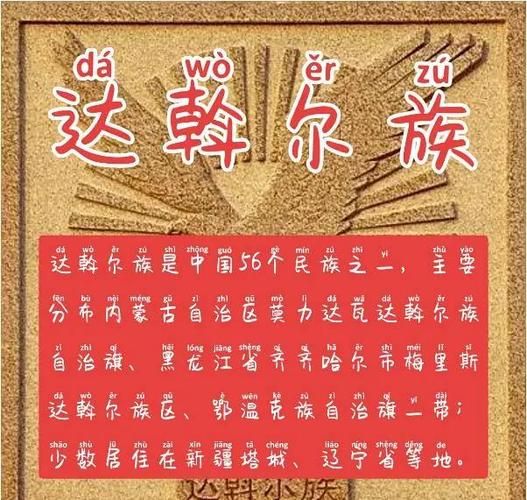 dá wò ěr zú
达斡尔族
dá wò ěr zú shì zhōng guó gè mín zú zhī yī zhǔ yào
达斡尔族是中国56个民族之一，主要
fēn bù nèi méng gǔ zì zhì qū mò lì dá wǎ dá wò ěr zú
分布内蒙古自治区莫力达瓦达斡尔族
zì zhì qí hēi lóng jiāng shěng qí qí hā ěr shì méi lǐ sī
自治旗、黑龙江省齐齐哈尔市梅里斯
dá wò ěr zú qū è wēn kè zú zì zhì qí yī dài
达斡尔族区、鄂温克族自治旗一带；
shǎo shù jū zhù zài xīn jiāng tǎ chéng liáo níng shěng děng de
少数居住在新疆塔城、辽宁省等地。
达斡尔族